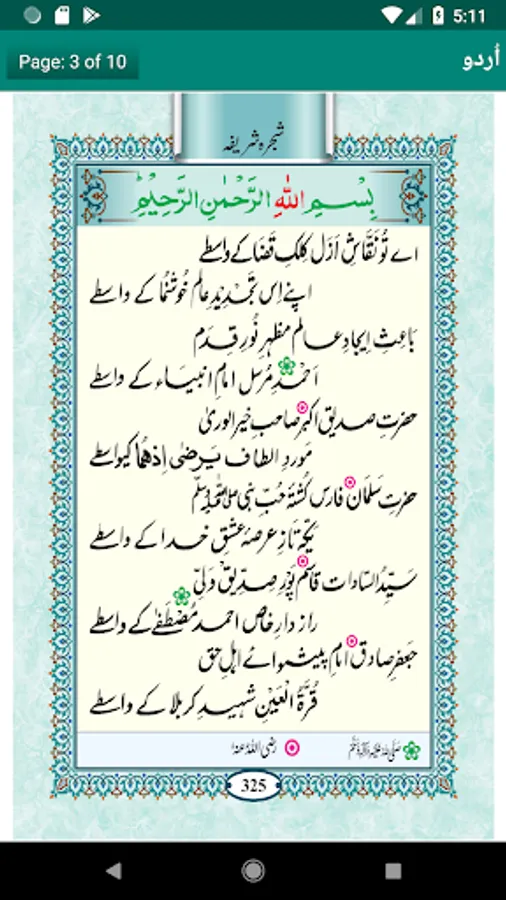 5:11
Page: 3 of 10
اُردو
شجرہ شریفہ
بِسْمِ اللّٰهِ الرَّحْمٰنِ الرَّحِيْمِ
اے تُو نَقَّاشِ اَزَل کِلکِ قَضَا کے واسطے
اپنے اِس تَجْدِیدِ عالَم خُوشنُما کے واسطے
بَاعِثِ اِیجادِ عالم مظہرِ نُورِ قِدَم
اَحْمَدِ مُرسل امامِ انبیاء کے واسطے
حضرتِ صدیقِ اکبر صاحبِ خیر الوریٰ
مَوردِ الطاف یَرضٰی اِذهُما کیواسطے
حضرتِ سَلْمَان فارس کُشتۂ حُبِّ نبی ﷺ
یکّہ تازِ عرصۂ عشقِ خدا کے واسطے
سَیِّدُ السَّادات قاسم پُورِ صِدِّیقؓ وَلِیّ
راز دارِ خاص احمد مُصْطَفٰے کے واسطے
جعفرِ صادق امامِ پیشوائے اہلِ حق
قُرَّۃُ الْعَیْنِ شہیدِ کربلا کے واسطے
رضی اللہ عنہ
325